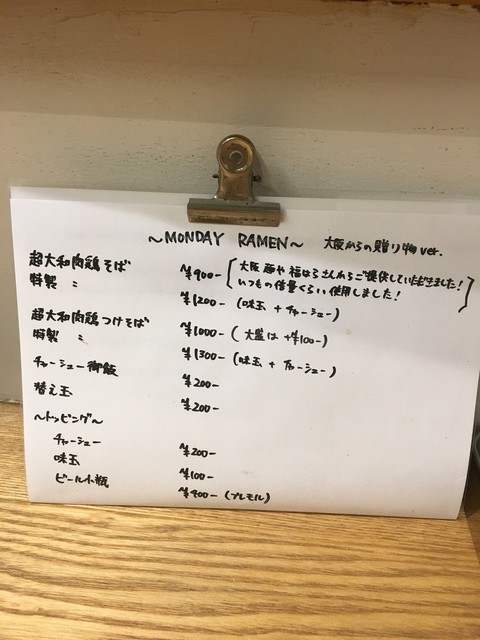 ～MONDAY RAMEN～ 大阪からの贈り物ver.
超大和肉鶏そば ¥900- (大阪 麺や 福はらさんからご提供していただきました!
いつもの倍量くらい使用しました!)
特製 〃 ¥1200- (味玉 + チャーシュー)
超大和肉鶏つけそば ¥1000- (大盛は +¥100-)
特製 〃 ¥1300- (味玉 + チャーシュー)
チャーシュー御飯 ¥200-
替え玉 ¥200-
～トッピング～
チャーシュー ¥200-
味玉 ¥100-
ビール小瓶 ¥400- (プレモル)